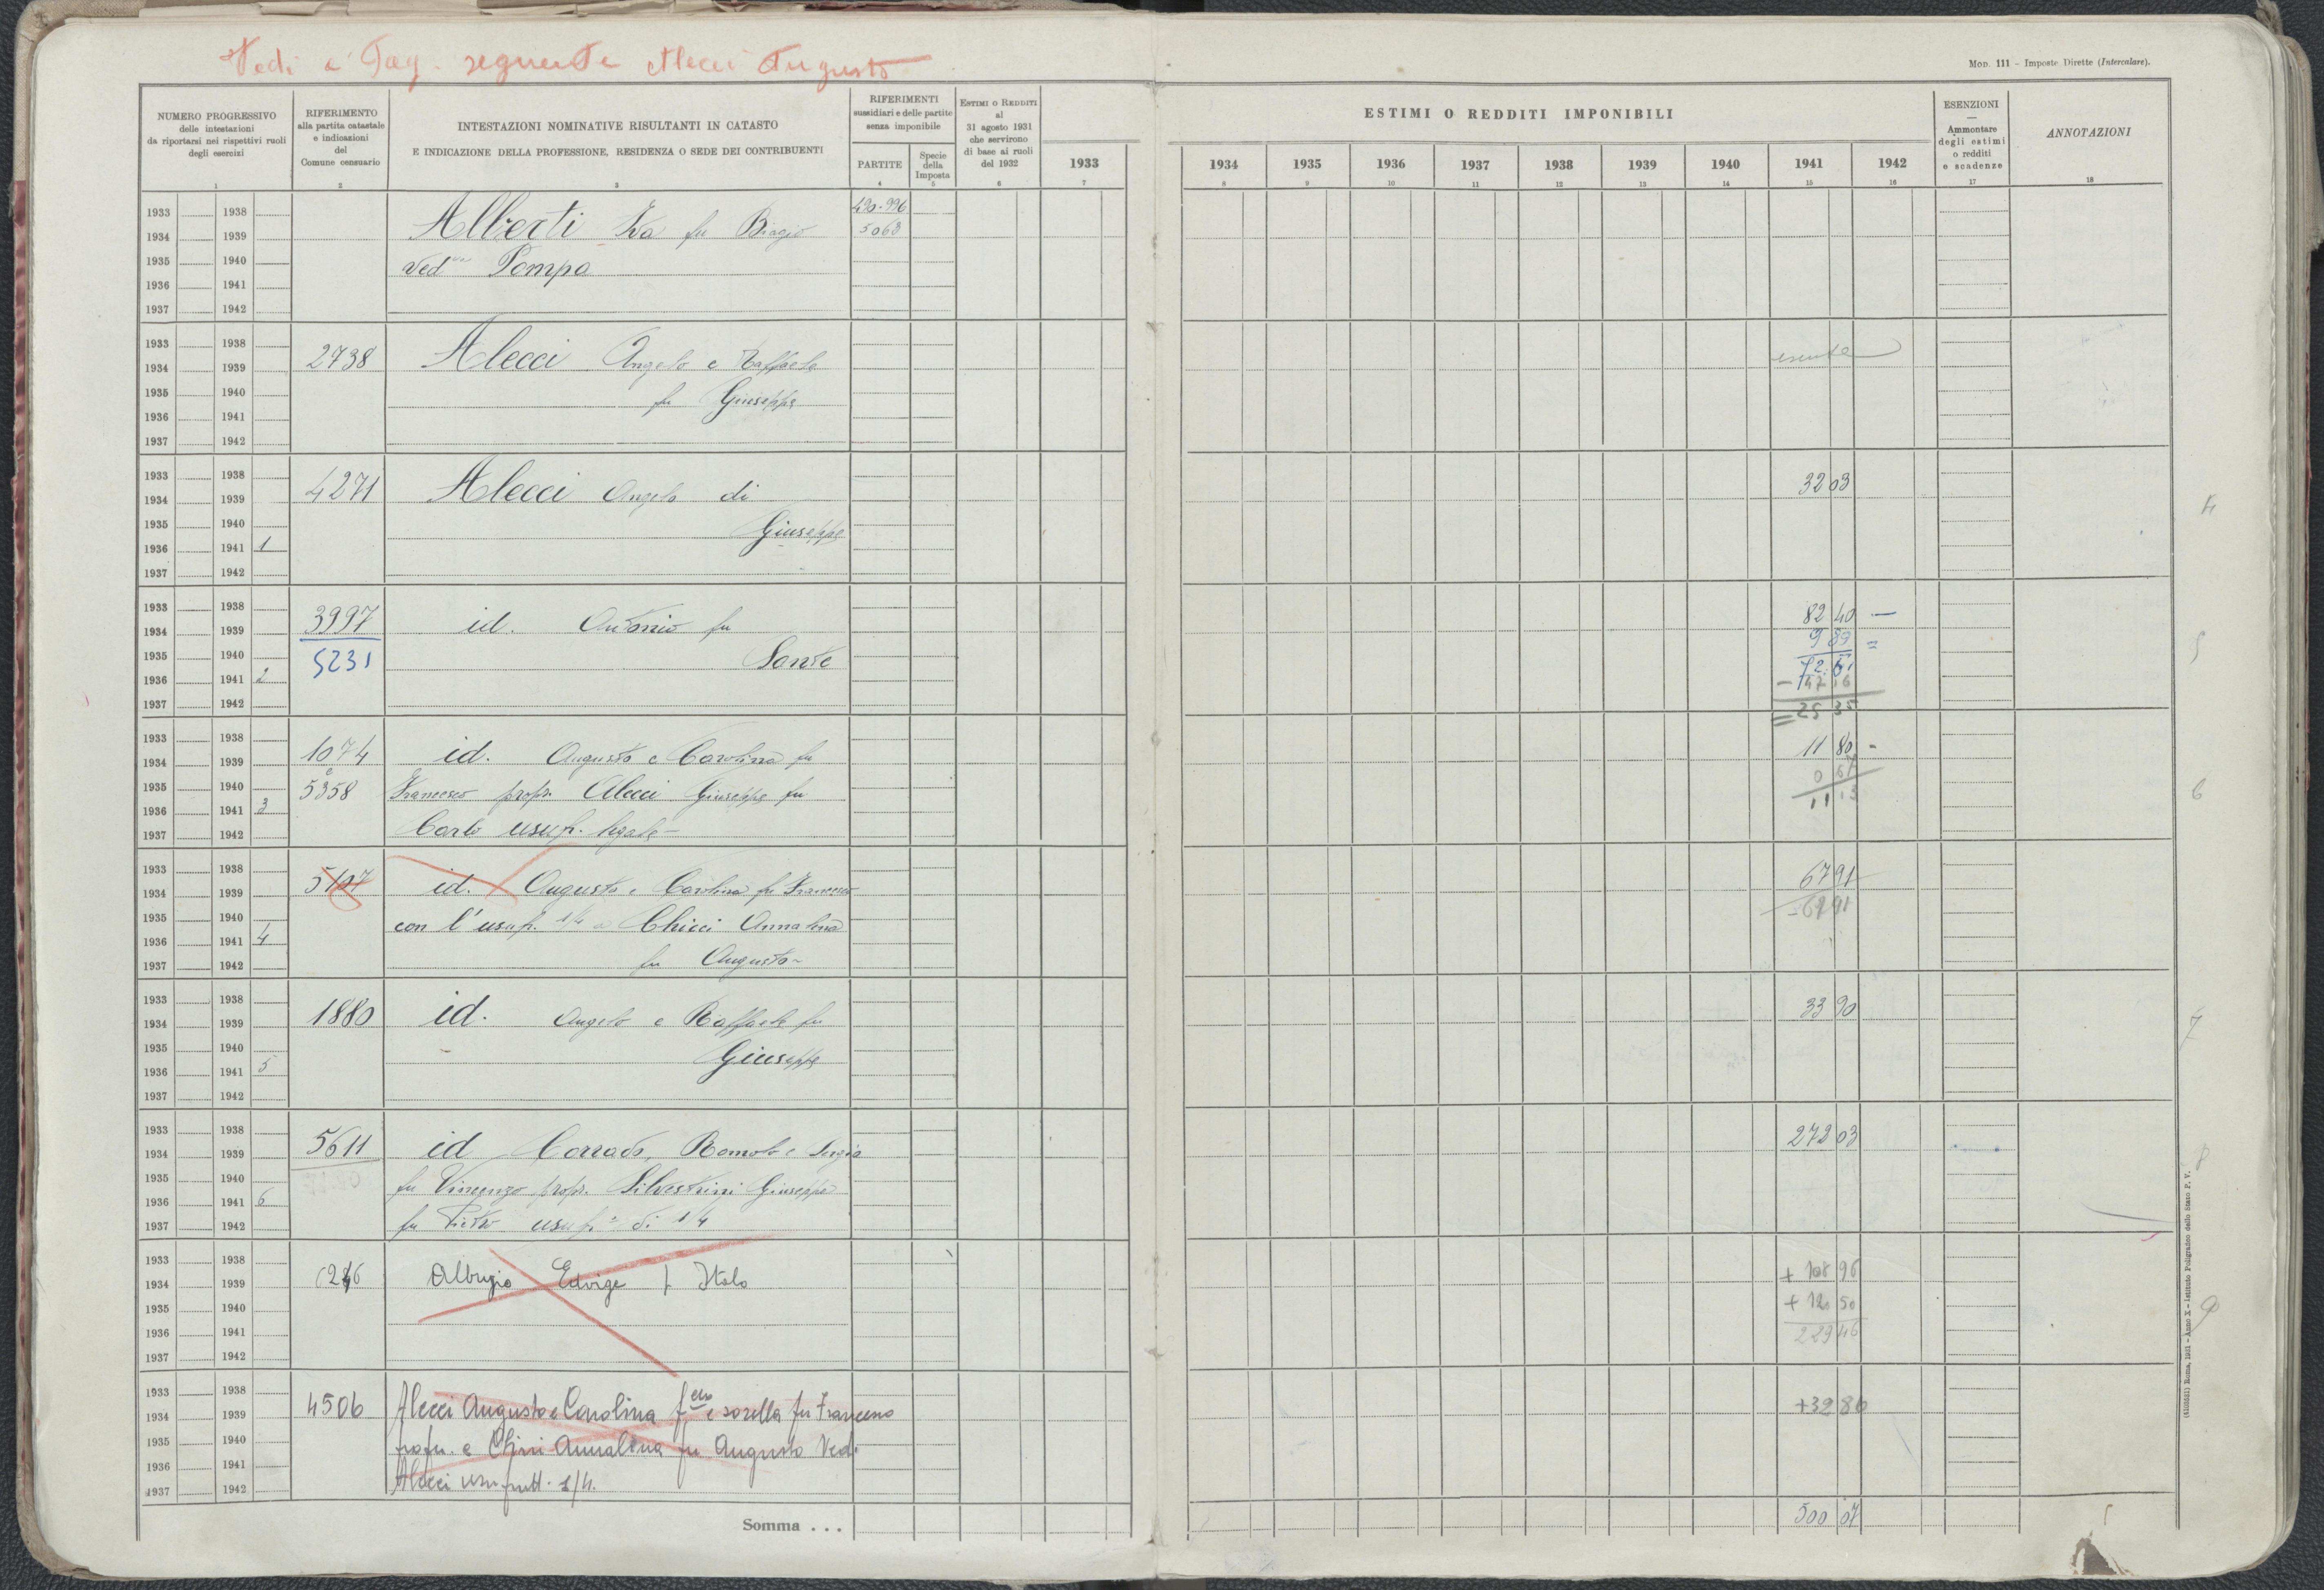 Vedi a Pag. seguente Alecci Augusto
Mod. 111 - Imposte Dirette (Intercalare).
NUMERO PROGRESSIVO
delle intestazioni
da riportarsi nei rispettivi ruoli
degli esercizi
1
RIFERIMENTO
alla partita catastale
e indicazioni
del
Comune censuario
2
INTESTAZIONI NOMINATIVE RISULTANTI IN CATASTO
E INDICAZIONE DELLA PROFESSIONE, RESIDENZA O SEDE DEI CONTRIBUENTI
3
RIFERIMENTI
sussidiari e delle partite
senza imponibile
PARTITE
4
Specie
della
Imposta
5
ESTIMI O REDDITI
al
31 agosto 1931
che servirono
di base ai ruoli
del 1932
6
1933
7
ESTIMI O REDDITI IMPONIBILI
1934 1935 1936 1937 1938 1939 1940 1941 1942
8 9 10 11 12 13 14 15 16
ESENZIONI
—
Ammontare
degli estimi
o redditi
e scadenze
17
ANNOTAZIONI
18
1933 1938 Alberti Iva fu Biagio 420-996
1934 1939 5063
1935 1940 Ved Pompo
1936 1941
1937 1942
1933 1938
1934 1939 2738 Alecci Angelo e Raffaele esente
1935 1940 fu Giuseppe
1936 1941
1937 1942
1933 1938
1934 1939 4271 Alecci Angelo di 32 03
1935 1940 Giuseppe
1936 1941 1
1937 1942
4
1933 1938 3997 id. Antonio fu 82 40 —
1934 1939 9 89 =
1935 1940 5231 Sante 72.51
1936 1941 2 - 47 16
1937 1942 = 25 35
5
1933 1938
1934 1939 1074 id. Augusto e Carolina fu 11 80 -
1935 1940 e 5358 Francesco propr. Alecci Giuseppe fu 0 67
1936 1941 3 11 13
1937 1942 Carlo usufr. legale -
6
1933 1938
1934 1939 5107 id. Augusto e Carolina fu Francesco 67 91
1935 1940 con l'usufr. 1/4 a Chicci Annalena - 67 91
1936 1941 4
1937 1942 fu Augusto -
1933 1938
1934 1939 1880 id. Angelo e Raffaele fu 33 90
1935 1940 Giuseppe
1936 1941 5
1937 1942
7
1933 1938
1934 1939 5611 id Corrado, Romolo e Sergio 272 03
1935 1940 fu Vincenzo propr. Silvestrini Giuseppe
1936 1941 6
1937 1942 fu Pietro usufr. di 1/4
8
1933 1938
1934 1939 Edvige f Italo + 108 96
1935 1940 + 120 50
1936 1941 229 46
1937 1942
9
1933 1938
1934 1939 4506 Alecci Augusto e Carolina f.llo e sorella fu Francesco +32 86
1935 1940 e Annalena fu Augusto Ved.
1936 1941
1937 1942 Alecci usufrutt. 1/4.
Somma . . . 500 07
Roma, 1931 - Anno X - Istituto Poligrafico dello Stato P. V.